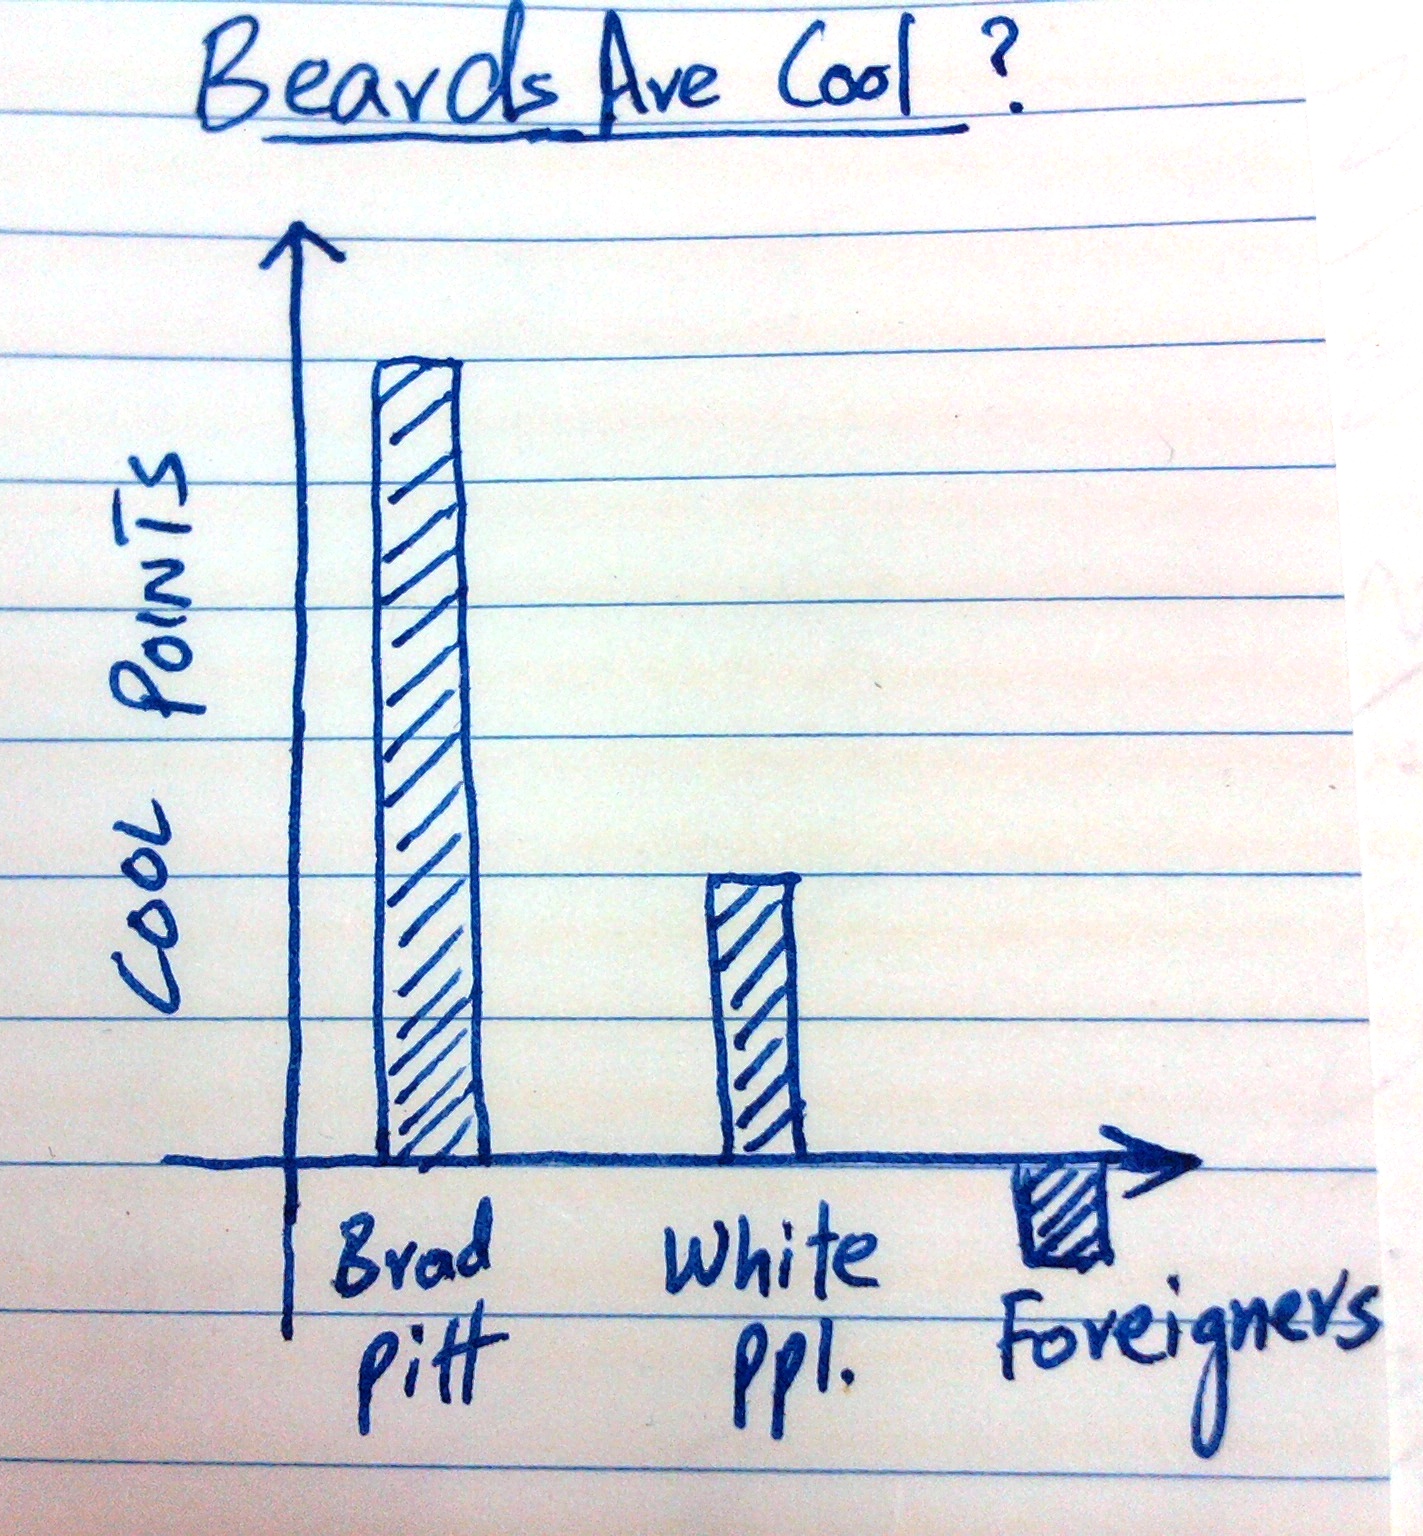 Beards Are Cool ?
COOL POINTS
Brad
Pitt
White
ppl.
Foreigners